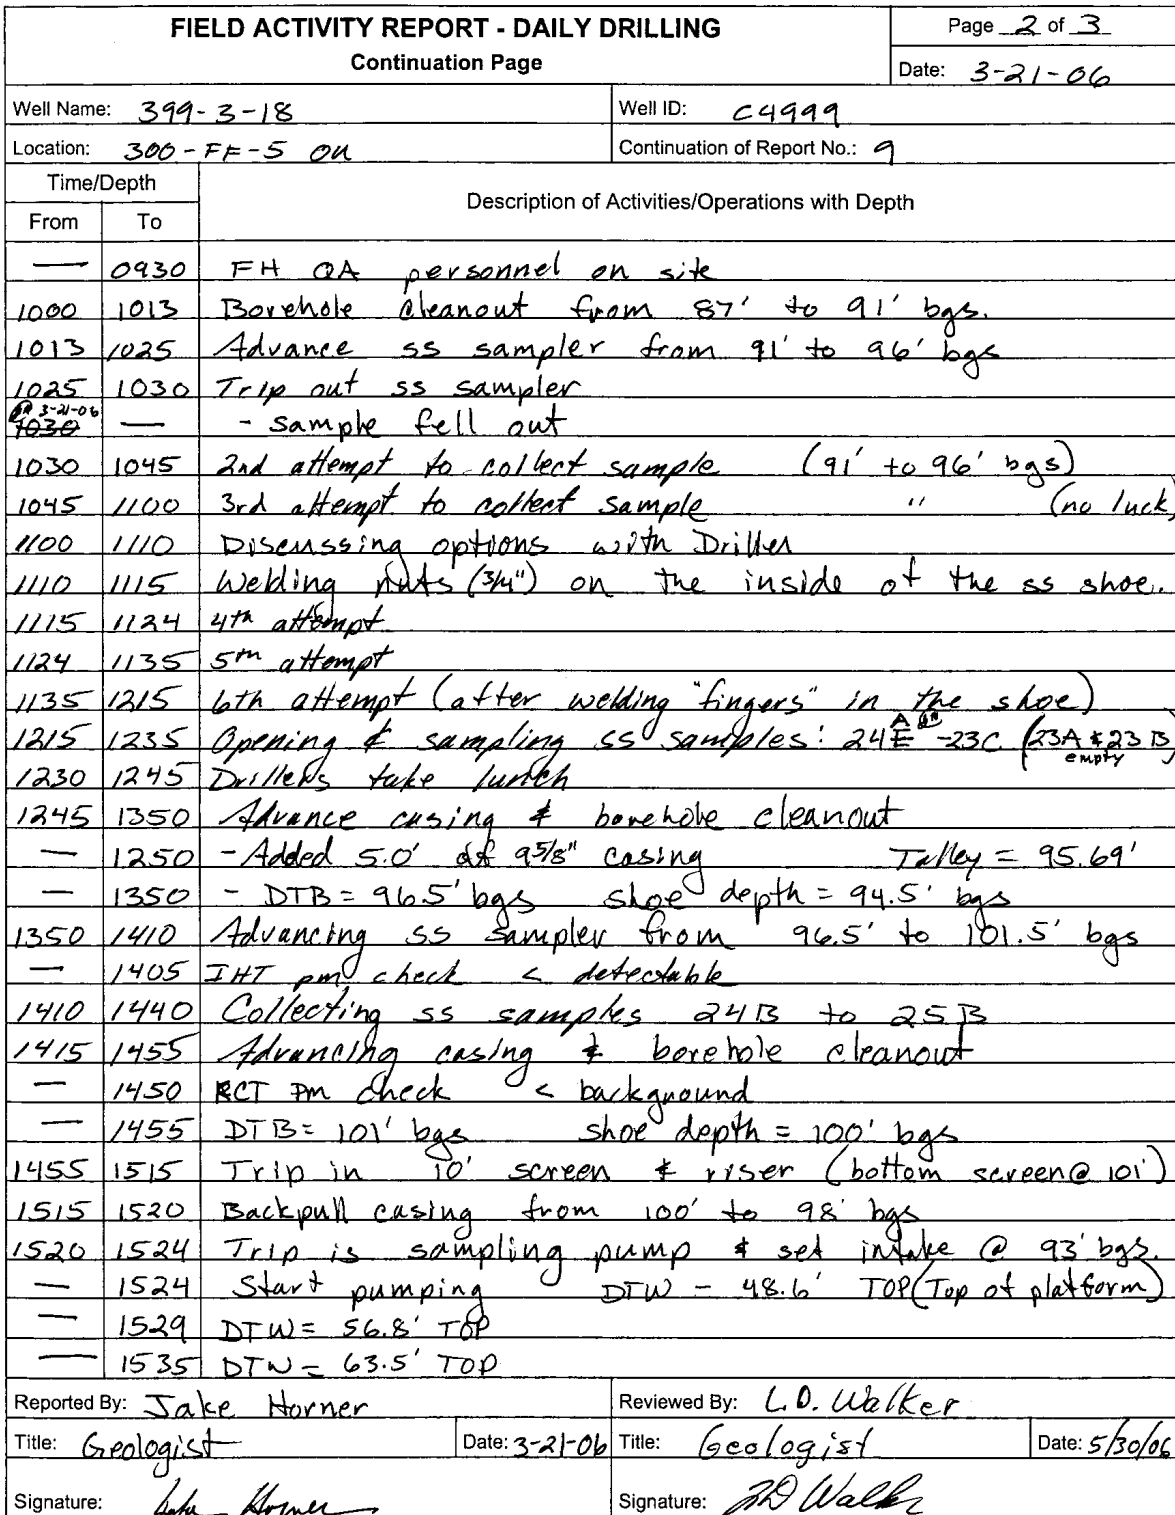 FIELD ACTIVITY REPORT - DAILY DRILLING
Continuation Page
Page 2 of 3
Date: 3-21-06
Well Name: 399-3-18
Well ID: C4999
Location: 300-FF-5 OU
Continuation of Report No.: 9
Time/Depth
From To
Description of Activities/Operations with Depth
— 0930 FH QA personnel on site
1000 1013 Borehole cleanout from 87' to 91' bgs.
1013 1025 Advance ss sampler from 91' to 96' bgs
1025 1030 Trip out ss sampler
3-21-06
1030 — - sample fell out
1030 1045 2nd attempt to collect sample (91' to 96' bgs)
1045 1100 3rd attempt to collect sample " (no luck)
1100 1110 Discussing options with Driller
1110 1115 Welding nuts (3/4") on the inside of the ss shoe.
1115 1124 4th attempt
1124 1135 5th attempt
1135 1215 6th attempt (after welding "fingers" in the shoe)
1215 1235 Opening & sampling ss samples: 24E A -23C (23A & 23B empty)
1230 1245 Drillers take lunch
1245 1350 Advance casing & borehole cleanout
— 1250 - Added 5.0' of 9 5/8" casing Talley = 95.69'
— 1350 - DTB = 96.5' bgs shoe depth = 94.5' bgs
1350 1410 Advancing ss sampler from 96.5' to 101.5' bgs
— 1405 IHT pm check < detectable
1410 1440 Collecting ss samples 24B to 25B
1415 1455 Advancing casing & borehole cleanout
— 1450 RCT pm check < background
— 1455 DTB = 101' bgs shoe depth = 100' bgs
1455 1515 Trip in 10' screen & riser (bottom screen @ 101')
1515 1520 Backpull casing from 100' to 98' bgs
1520 1524 Trip is sampling pump & set intake @ 93' bgs.
— 1524 Start pumping DTW - 48.6' TOP (Top of platform)
— 1529 DTW = 56.8' TOP
— 1535 DTW = 63.5' TOP
Reported By: Jake Horner
Reviewed By: L.D. Walker
Title: Geologist Date: 3-21-06
Title: Geologist Date: 5/30/06
Signature: Jake Horner
Signature: LD Walker